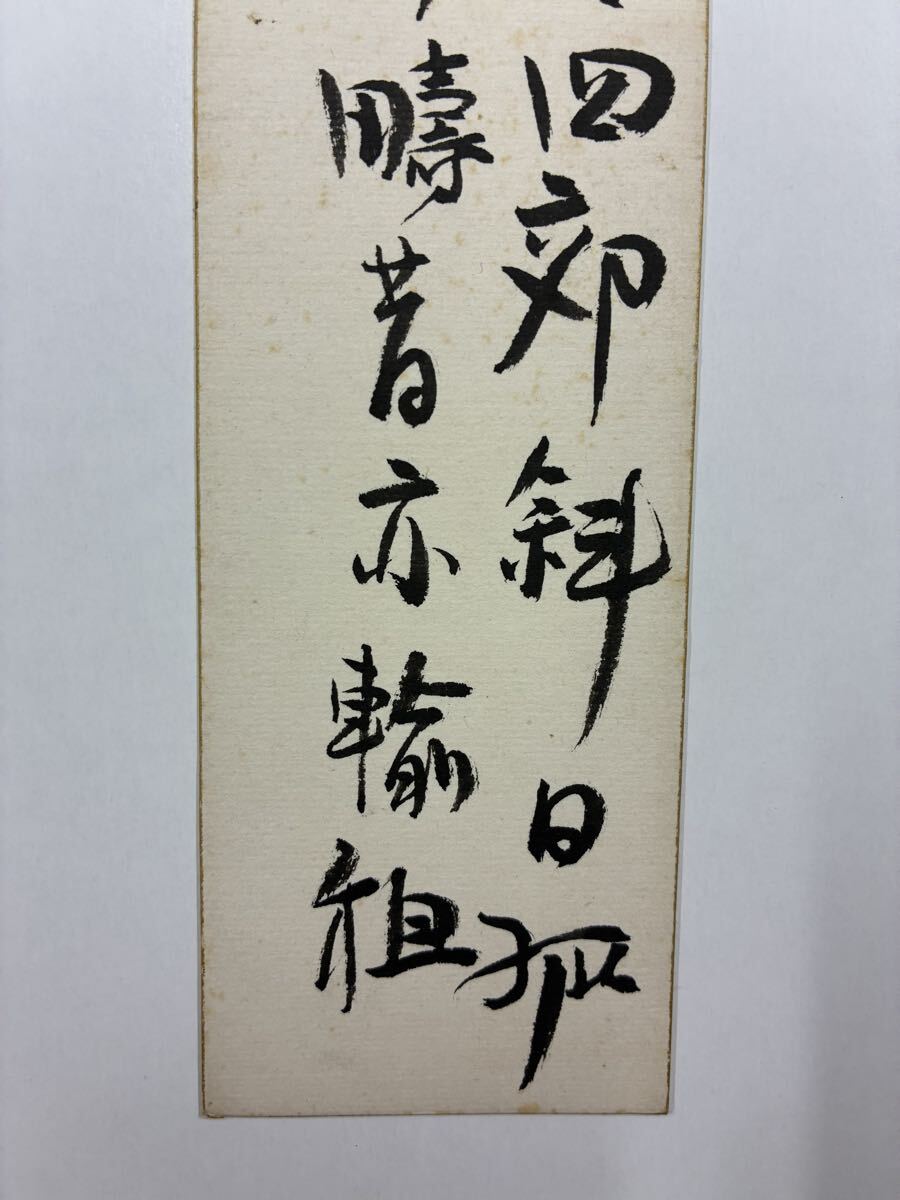 四郊斜日孤
疇昔亦輸租